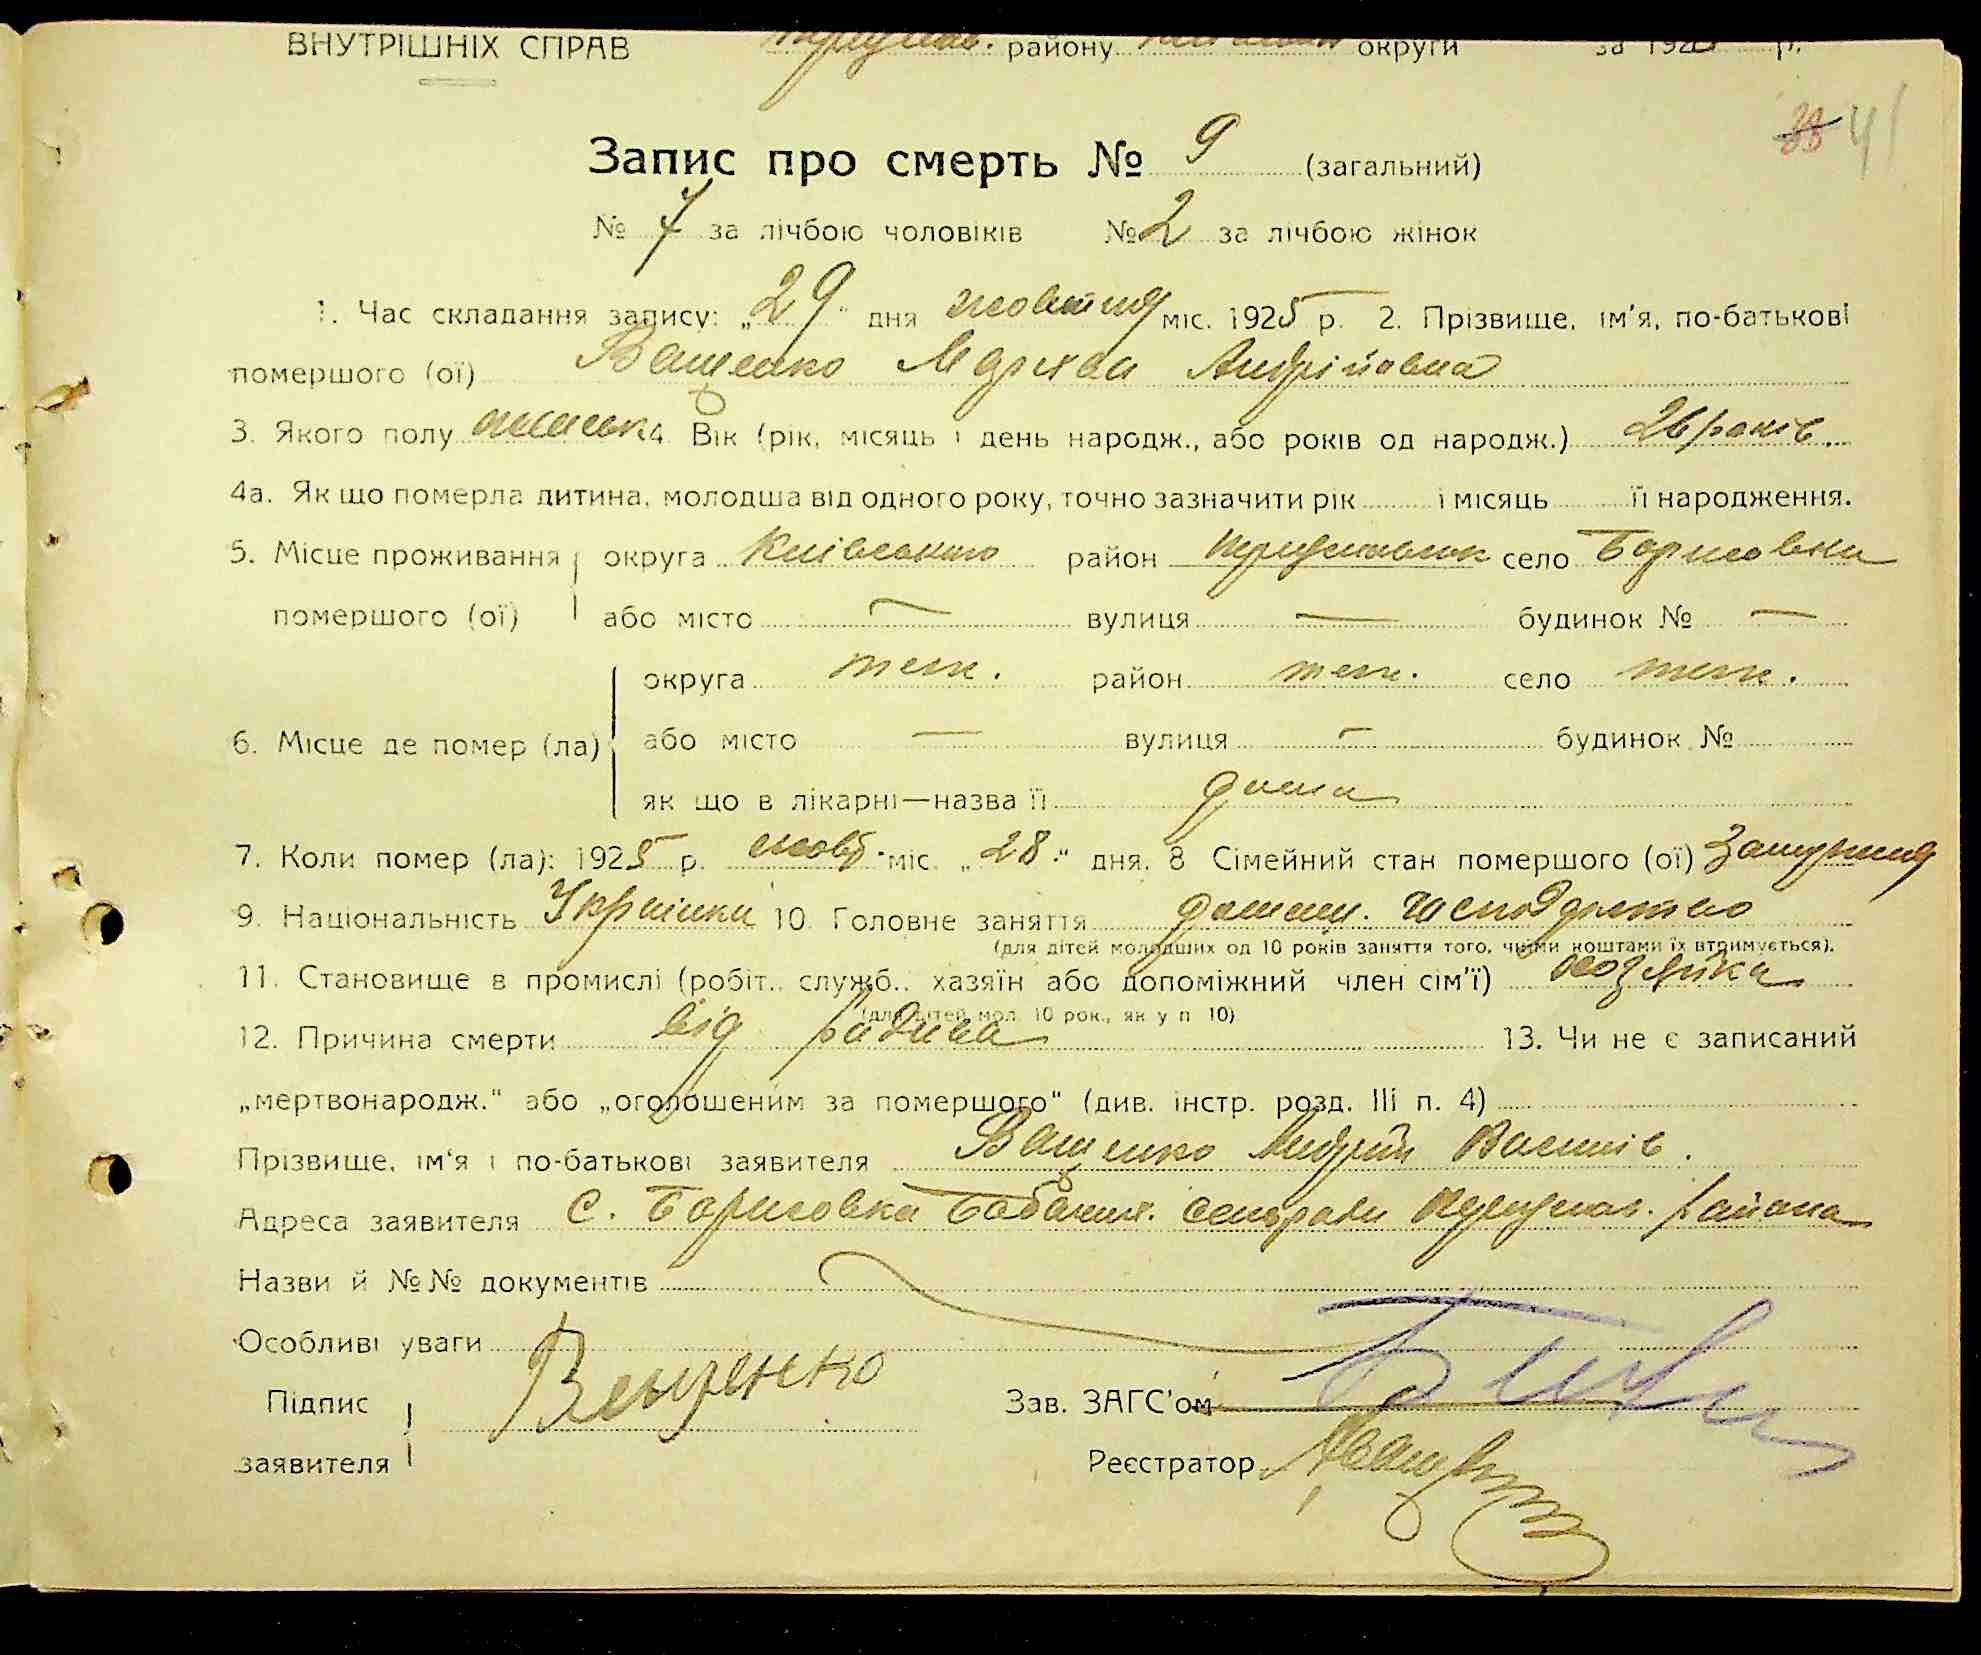 ВНУТРІШНІХ СПРАВ району округи за 1925 р.
41
Запис про смерть № 9 (загальний)
№ 7 за лічбою чоловіків № 2 за лічбою жінок
1. Час складання запису: „29“ дня жовтня міс. 1925 р. 2. Прізвище, ім'я, по-батькові
помершого (ої) Ващенко Мархва Андрійовна
3. Якого полу жіньк. 4. Вік (рік, місяць і день народж., або років од народж.) 26 років.
4а. Як що померла дитина, молодша від одного року, точно зазначити рік і місяць її народження.
5. Місце проживання округа Київською район село Борисовка
помершого (ої) або місто — вулиця — будинок № —
округа теж. район теж. село теж.
6. Місце де помер (ла) або місто — вулиця — будинок №
як що в лікарні—назва її дома
7. Коли помер (ла): 1925 р. жовт. міс. „28“ дня. 8 Сімейний стан помершого (ої) Замужня
9. Національність Українка 10. Головне заняття домашн. господарство
(для дітей молодших од 10 років заняття того, чиїми коштами їх втримується).
11. Становище в промислі (робіт., служб., хазяїн або допоміжний член сім'ї) хозяйка
(для дітей мол. 10 рок., як у п 10)
12. Причина смерти від родива 13. Чи не є записаний
„мертвонародж.“ або „оголошеним за помершого“ (див. інстр. розд. III п. 4)
Прізвище, ім'я і по-батькові заявителя Ващенко Андрій Васильів.
Адреса заявителя С. Борисовка Бабачих. сельради района
Назви й №№ документів
Особливі уваги
Підпис Ващенко Зав. ЗАГС'ом
заявителя Реєстратор